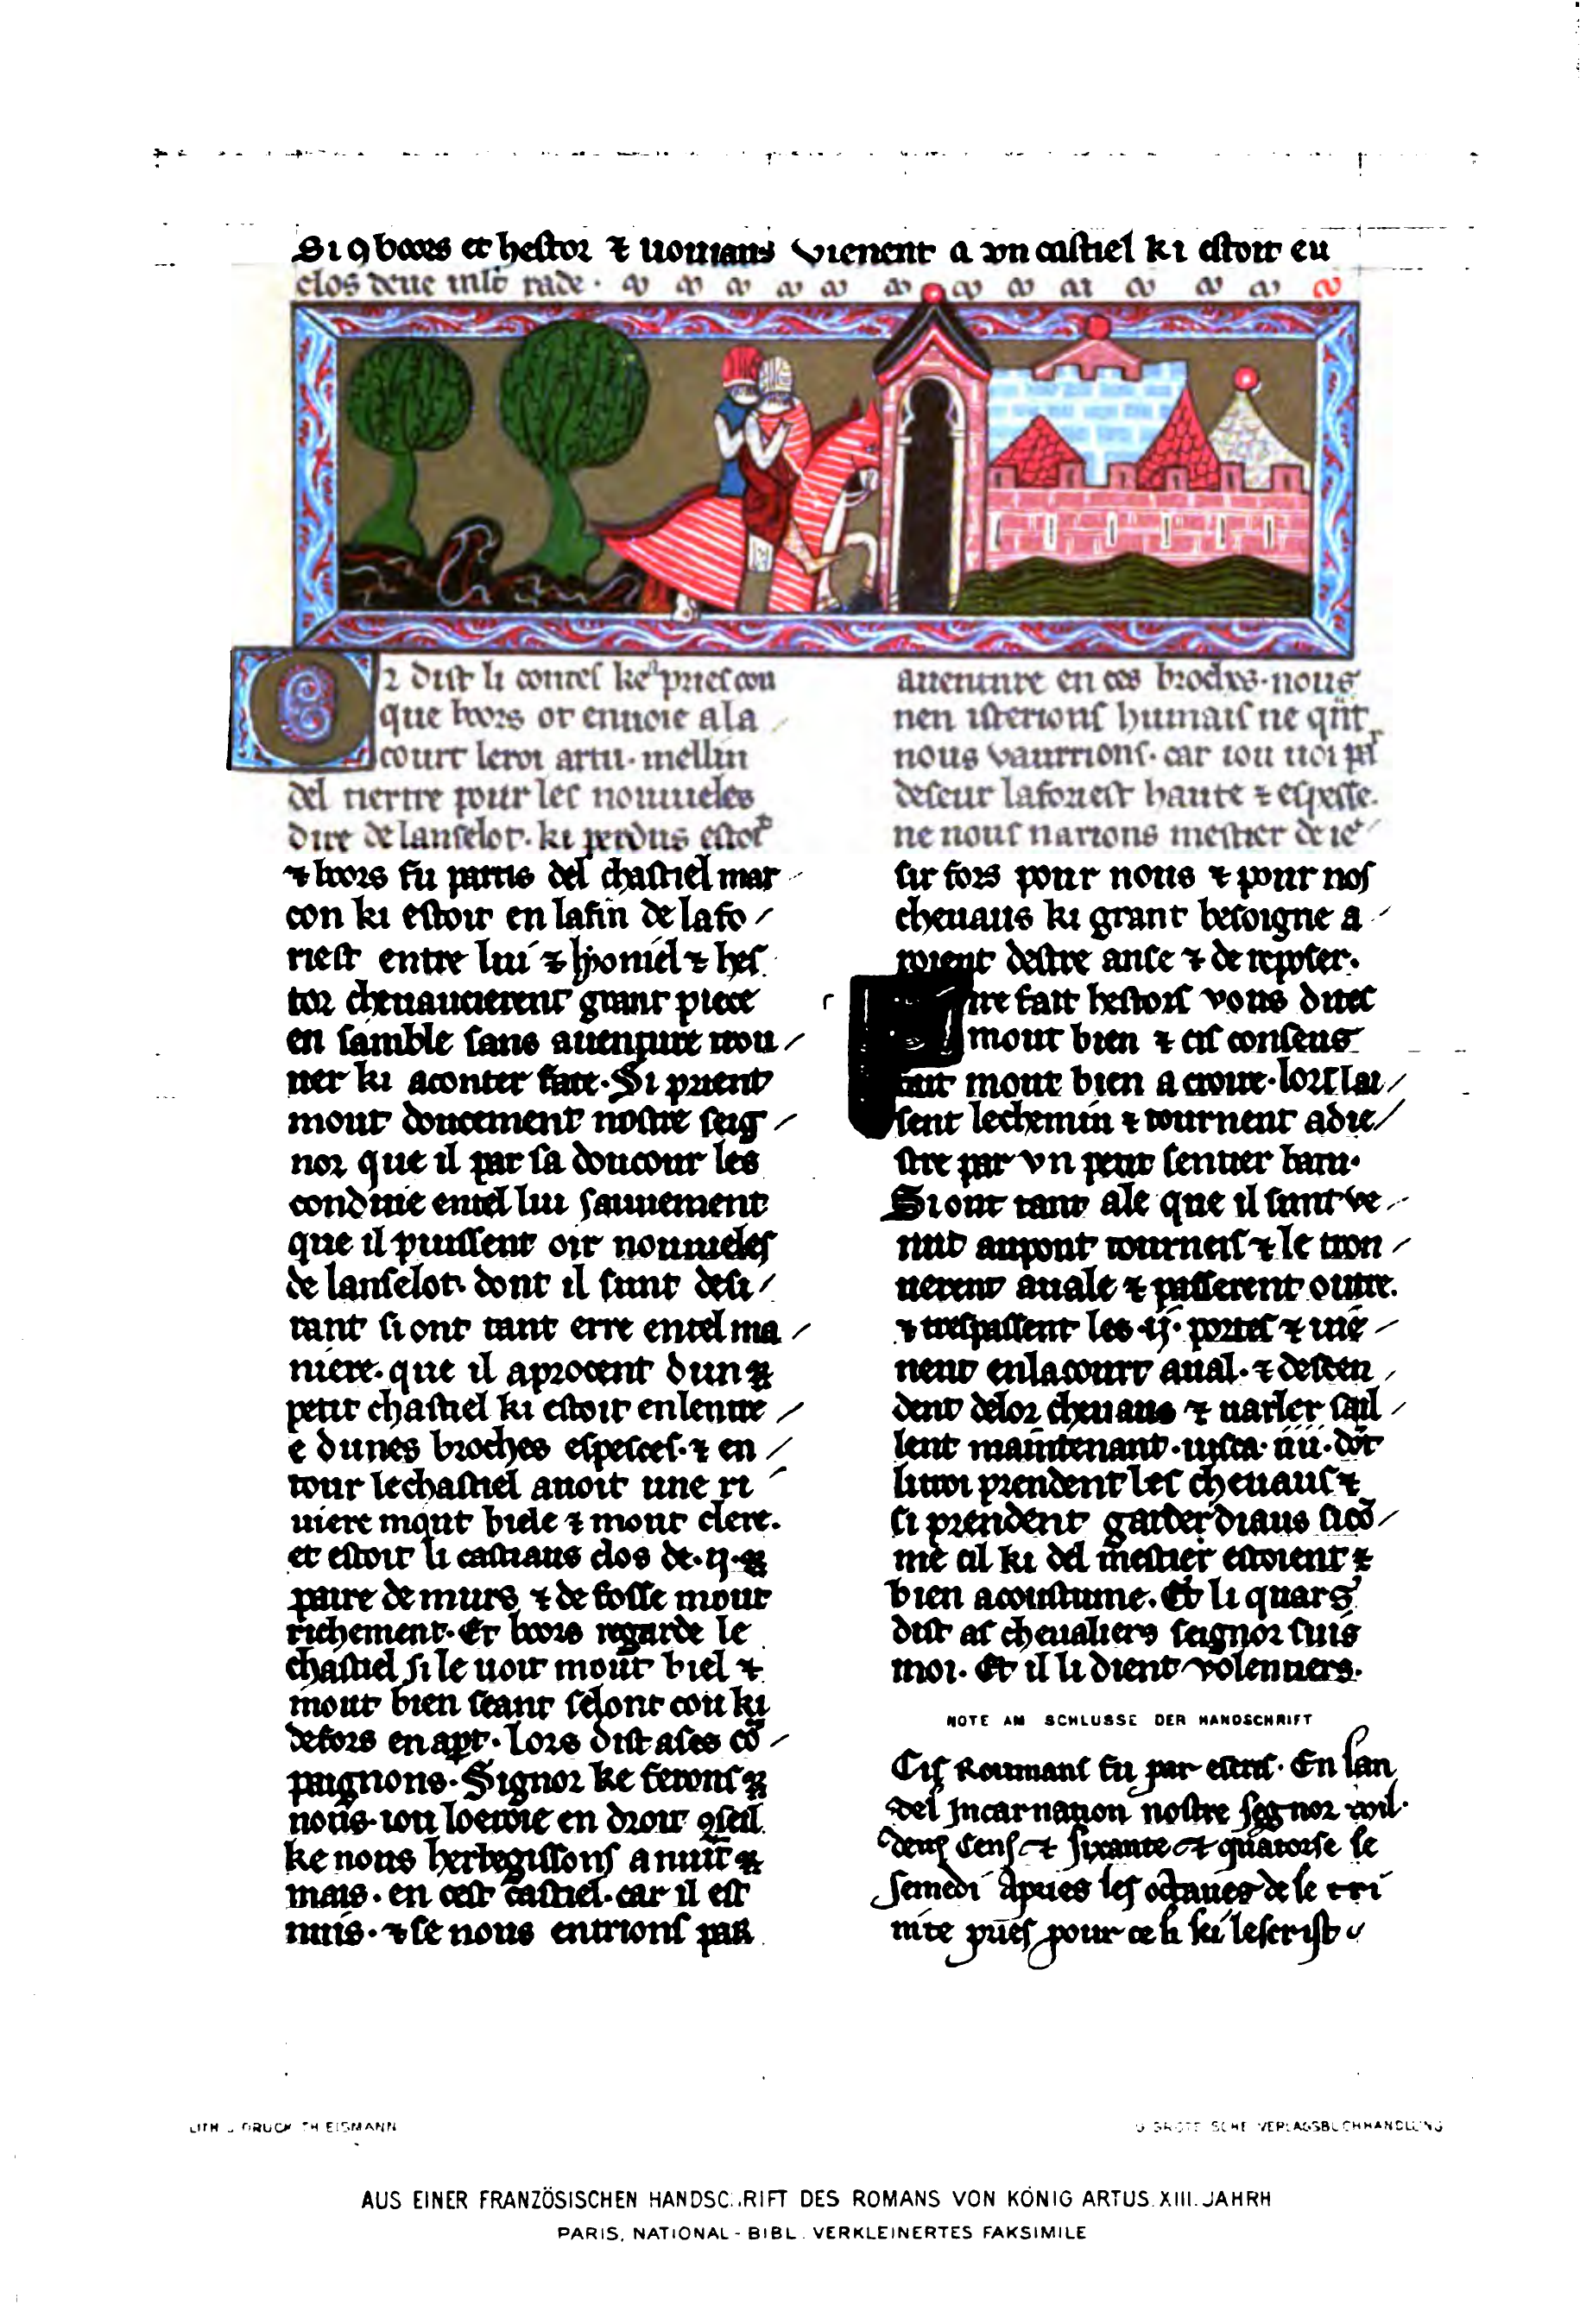 Si 9 boors et hestor ⁊ lionians vienent a vn castiel ki estoit en
clos deue
Or dist li contes ke pries cou
que boors ot enuoie a la
court le roi artu. mellin
del tiertre pour les nouuieles
dire de lanselot. ki perdus estoit
⁊ boors fu partis del chastiel mar
con ki estoit en la fin de la fo
riest entre lui ⁊ lyoniel ⁊ hes
tor cheuaucierent grant piece
en samble sans auenture trou
uer ki a conter face. Si prient
mout doucement nostre seig
nor que il par sa doucour les
conduie en tel liu sauuement
que il puissent oir nouuieles
de lanselot. dont il sunt desi
rant si ont tant erre en tel ma
niere. que il aprocent dun
petit chastiel ki estoit en lentre
e dunes broches espesses. ⁊ en
tour le chastiel auoit une ri
uiere mout biele ⁊ mout clere.
et estoit li castiaus clos de .ij.
paire de murs ⁊ de fosse mout
richement. Et boors regarde le
chastiel si le uoit mout biel ⁊
mout bien seant selonc cou ki
defors en apt. Lors dist a ses cō
paignons. Signor ke ferons
nous. iou loeroie en droit 9seil
ke nous herbegissons anuit
mais. en cest castiel. car il est
nuis. ⁊ se nous entrions par
auenture en ces broches. nous
nen isterions humais ne qnt
nous vaurrions. car iou uoi
deseur la foriest haute ⁊ espesse.
ne nous narions mestier de ie
sir fors pour nous ⁊ pour nos
cheuaus ki grant besoigne a
roient destre aise ⁊ de reposer.
Sire fait hestors vous dites
mout bien ⁊ cis conseus
fait mout bien a croire. lors lai
sent le chemin ⁊ tournent a die
stre par vn petit sentier batu.
Si ont tant ale que il sunt ve
nut au pont tourneis ⁊ le trou
uerent auale ⁊ passerent outre.
⁊ trespassent les .ij. portes ⁊ uie
nent en la court aual. ⁊ descen
dent de lor cheuaus ⁊ uarlet sail
lent maintenant. iusca. iiii. dōt
li troi prendent les cheuaus ⁊
si prendent garde diaus si cō
me cil ki del mestier estoient ⁊
bien acoustume. Et li quars
dist as cheualiers seignor suis
moi. Et il li dient volentiers.
NOTE AM SCHLUSSE DER HANDSCHRIFT
Cis Roumans fu par escris. En lan
del Incarnation nostre segnor mil
deus cens ⁊ sixante ⁊ quatorse le
semedi apries les octaues de le tri
nite pries pour celi ki lescrist
LITH U. DRUCK TH EISMANN
G GROTE SCHE VERLAGSBUCHHANDLUNG
AUS EINER FRANZÖSISCHEN HANDSCHRIFT DES ROMANS VON KÖNIG ARTUS. XIII. JAHRH
PARIS, NATIONAL-BIBL. VERKLEINERTES FAKSIMILE